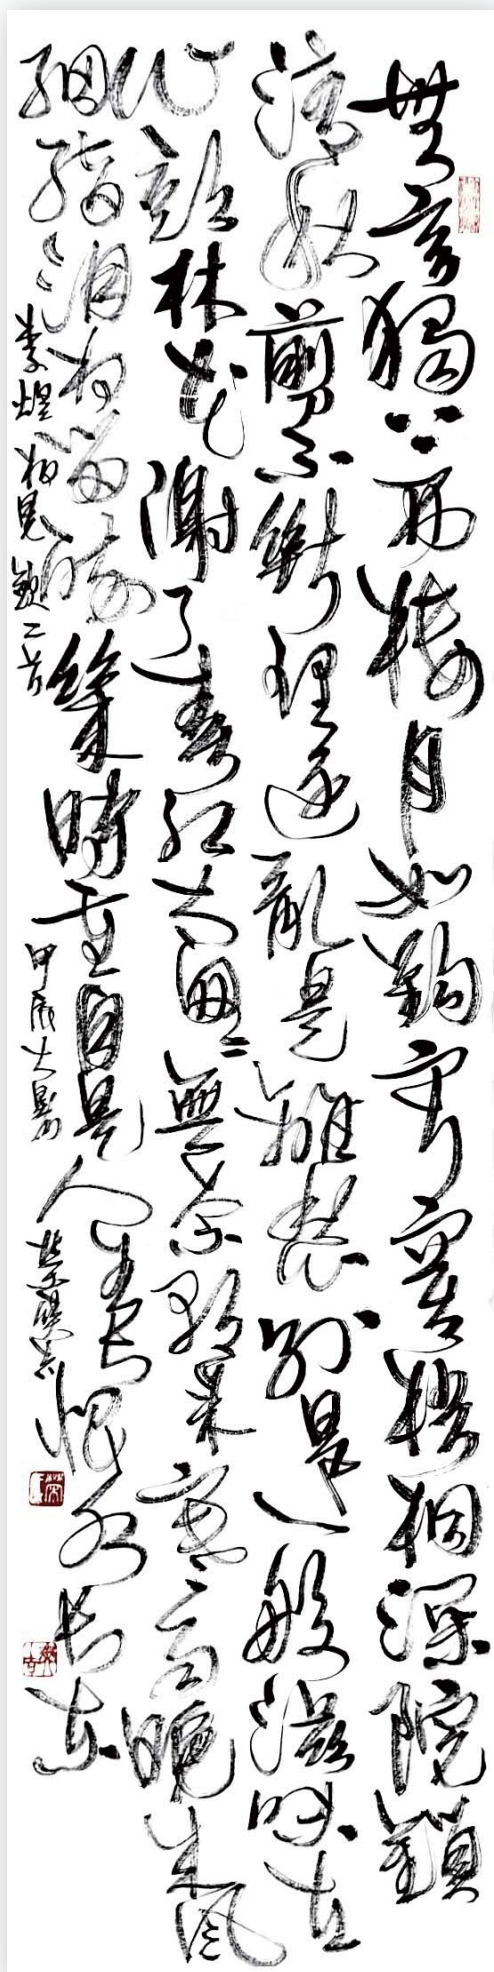 無言獨上西樓月如鈎寂寞梧桐深院鎖
清秋剪不斷理還亂是離愁別是一般滋味在
心頭林花謝了春紅太匆匆無奈朝來寒雨晚來風
胭脂淚相留醉幾時重自是人生長恨水長東
李煜相見歡二首 甲辰大暑